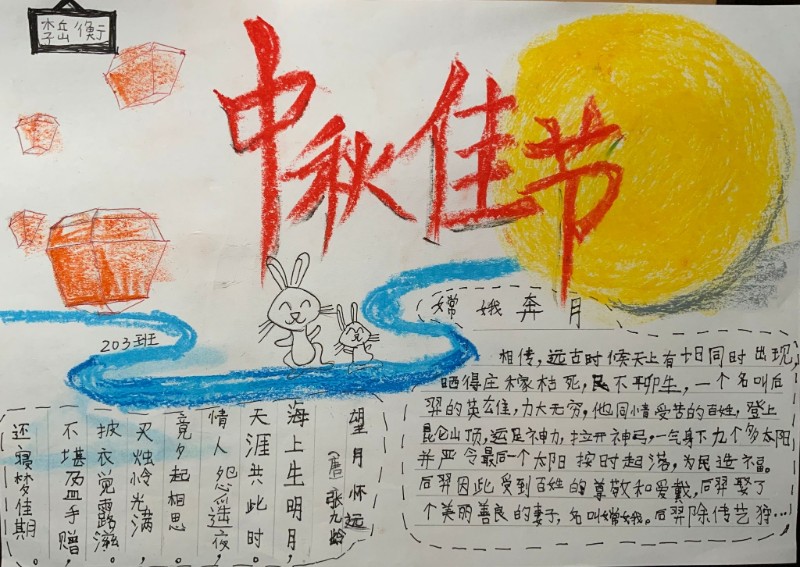 李岳衡
中秋佳节
203班
嫦娥奔月
相传,远古时候天上有十日同时出现,
晒得庄稼枯死,民不聊生,一个名叫后
羿的英雄,力大无穷,他同情受苦的百姓,登上
昆仑山顶,运足神力,拉开神弓,一气射下九个多太阳
并严令最后一个太阳按时起落,为民造福。
后羿因此受到百姓的尊敬和爱戴,后羿娶了
个美丽善良的妻子,名叫嫦娥。后羿除传艺狩…
望月怀远
(唐)张九龄
海上生明月,
天涯共此时。
情人怨遥夜,
竟夕起相思。
灭烛怜光满,
披衣觉露滋。
不堪盈手赠,
还寝梦佳期。